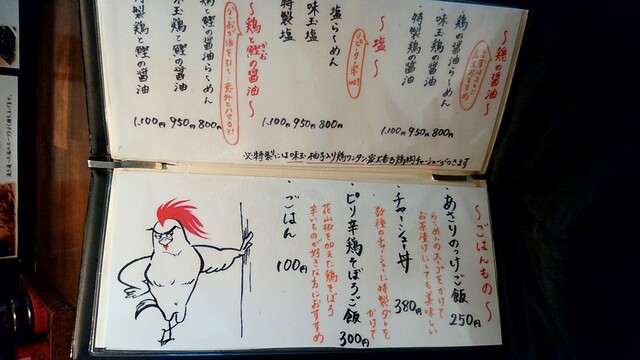 ～鶏の醤油～
鶏の醤油らーめん
味玉鶏の醤油
特製鶏の醤油
800円
950円
1,100円
～塩～
リピーター率No.1
塩らーめん
味玉塩
特製塩
800円
950円
1,100円
～鶏と鰹の醤油～
かつお
鶏と鰹の醤油らーめん
味玉鶏と鰹の醤油
特製鶏と鰹の醤油
800円
950円
1,100円
※特製には味玉・柚子入り鶏ワンタン・炭火香る鶏腿肉チャーシューがつきます
～ごはんもの～
・あさりのっけご飯 250円
らーめんのスープをかけて
お茶漬けにしても美味しい
・チャーシュー丼 380円
数種のチャーシューに特製ダレを
かけて
・ピリ辛鶏そぼろご飯 300円
花山椒を加えた鶏そぼろ
辛いものが好きな方におすすめ
・ごはん 100円